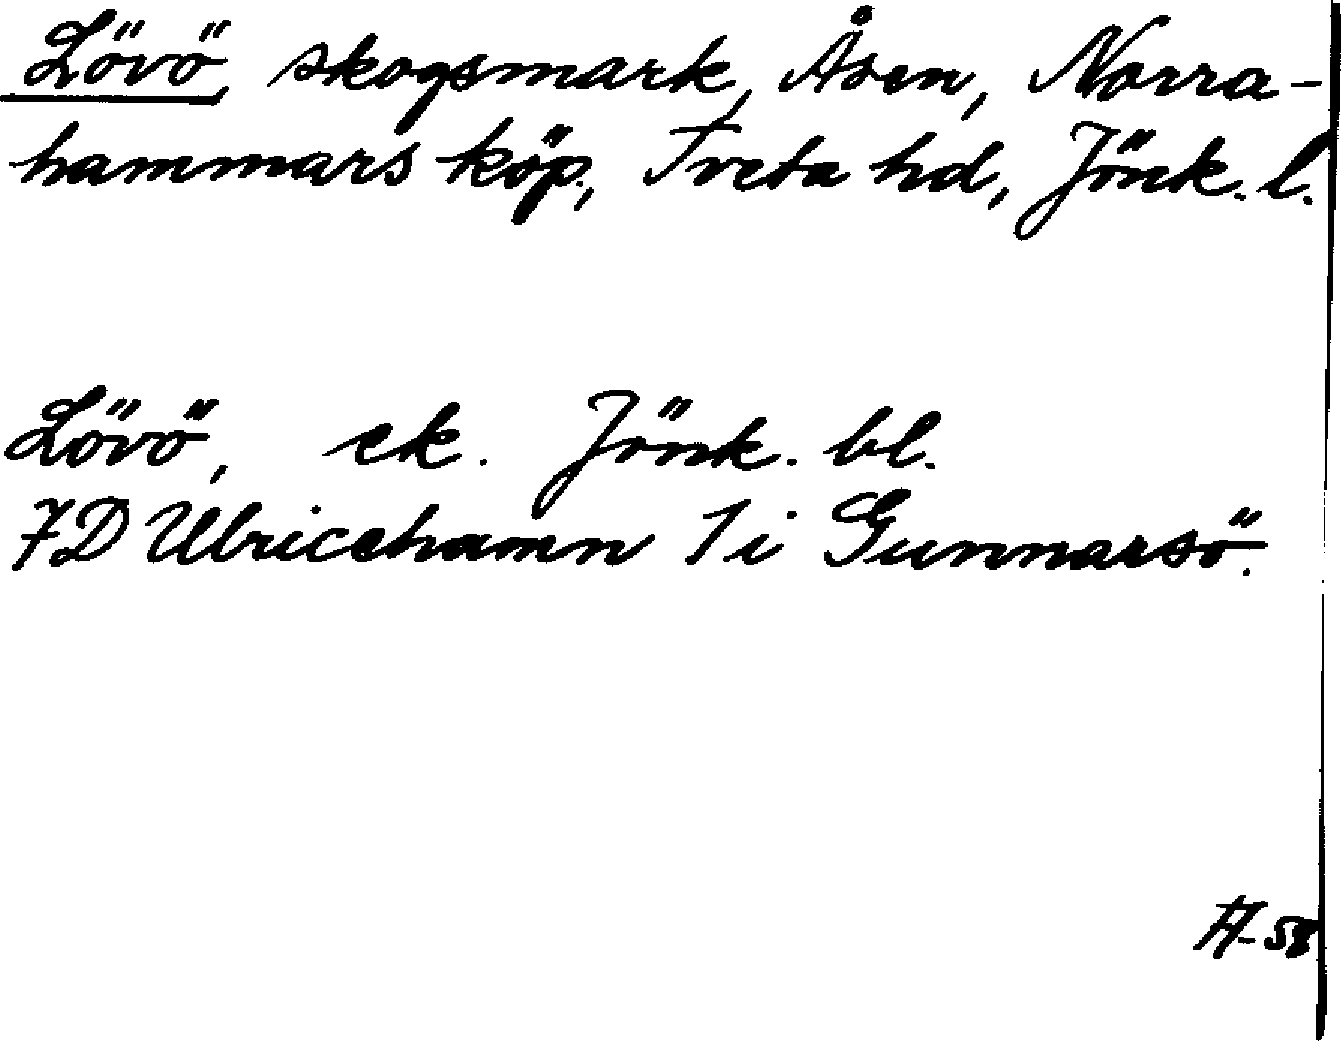 Lövö, skogsmark, Åsen, Norra-
hammars köp., Tveta hd, Jönk. l.
Lövö, ek. Jönk. bl.
7D Ulricehamn 1 i Gunnarsö.